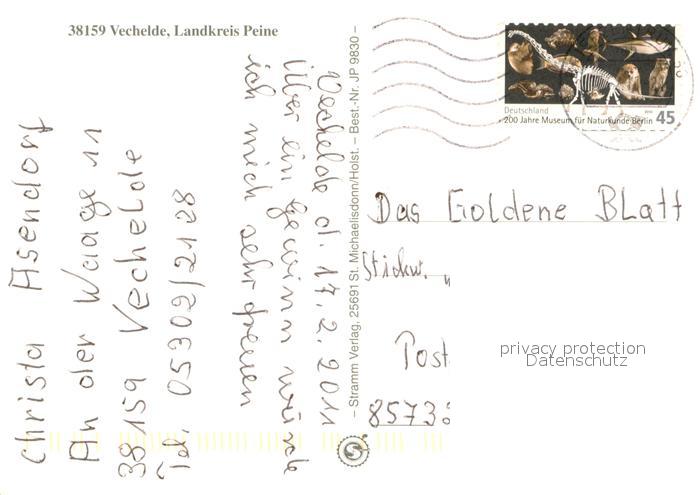 38159 Vechelde, Landkreis Peine
Vechelde d. 17.2.2011
Über ein Gewinn würde
ich mich sehr freuen
Christa Asendorf
An der Waage 11
38159 Vechelde
Tel. 05302/2128
– Stramm Verlag, 25691 St. Michaelisdonn/Holst. – Best.-Nr. JP 9830 –
Deutschland
200 Jahre Museum für Naturkunde Berlin 45
Das Goldene Blatt
Stichw. "
Post
85738
privacy protection
Datenschutz